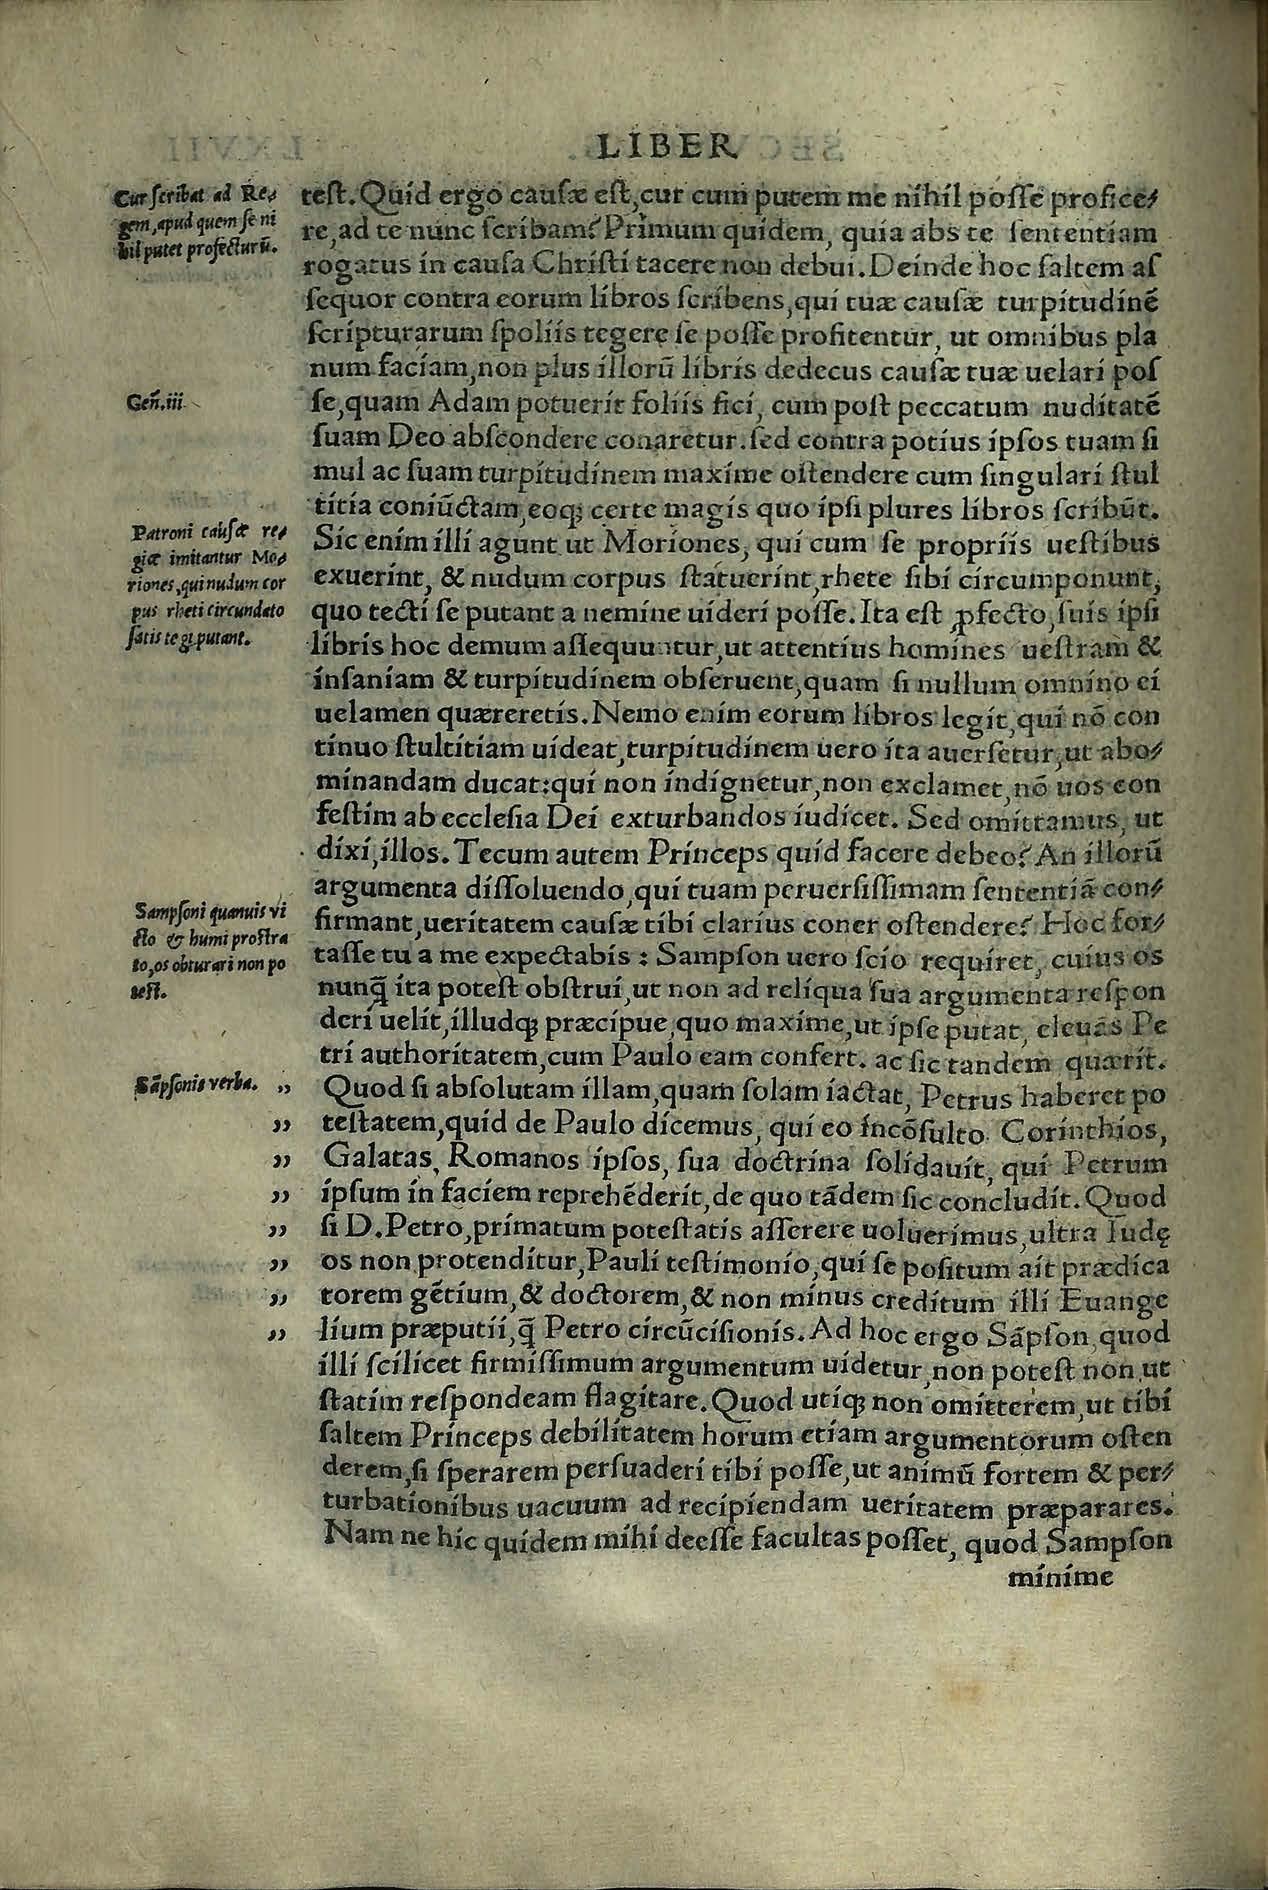 LIBER
Cur scribat ad Re⸗
gem, apud quem se ni
hil putet profecturū.
teſt. Quid ergo cauſæ eſt, cur cum putem me nihil poſſe profice⸗
re, ad te nunc ſcribam? Primum quidem, quia abs te ſententiam
rogatus in cauſa Chriſti tacere non debui. Deinde hoc ſaltem aſ
ſequor contra eorum libros ſcribens, qui tuæ cauſæ turpitudinē
ſcripturarum ſpoliis tegere ſe poſſe profitentur, ut omnibus pla
num faciam, non plus illorū libris dedecus cauſæ tuæ uelari poſ
Geñ. iii.
ſe, quam Adam potuerit foliis fici, cum poſt peccatum nuditatē
ſuam Deo abſcondere conaretur. ſed contra potius ipſos tuam ſi
mul ac ſuam turpitudinem maxime oſtendere cum ſingulari ſtul
titia coniūctam, eoq; certe magis quo ipſi plures libros ſcribūt.
Patroni cauſæ re⸗
giæ imitantur Mo⸗
riones, qui nudum cor
pus rheti circundato
ſatis tegi putant.
Sic enim illi agunt ut Moriones, qui cum ſe propriis ueſtibus
exuerint, & nudum corpus ſtatuerint, rhete ſibi circumponunt,
quo tecti ſe putant a nemine uideri poſſe. Ita eſt ꝓfecto, ſuis ipſi
libris hoc demum aſſequuntur, ut attentius homines ueſtram &
inſaniam & turpitudinem obſeruent, quam ſi nullum omnino ei
uelamen quæreretis. Nemo enim eorum libros legit, qui nō con
tinuo ſtultitiam uideat, turpitudinem uero ita auerſetur, ut abo⸗
minandam ducat: qui non indignetur, non exclamet, nō uos con
feſtim ab eccleſia Dei exturbandos iudicet. Sed omittamus, ut
dixi, illos. Tecum autem Princeps quid facere debeo? An illorū
argumenta diſſoluendo, qui tuam peruerſiſſimam ſententiā con⸗
Sampſoni quanuis vi
cto & humi proſtra
to, os obturari non po
teſt.
firmant, ueritatem cauſæ tibi clarius coner oſtendere? Hoc for⸗
taſſe tu a me expectabis: Sampſon uero ſcio requiret, cuius os
nunq̄ ita poteſt obſtrui, ut non ad reliqua ſua argumenta reſpon
deri uelit, illudq; præcipue, quo maxime, ut ipſe putat, eleuās Pe
tri authoritatem, cum Paulo eam confert. ac ſic tandem quærit.
Sāpſonis verba. ,,
Quod ſi abſolutam illam, quam ſolam iactat, Petrus haberet po
,, teſtatem, quid de Paulo dicemus, qui eo incōſulto Corinthios,
,, Galatas, Romanos ipſos, ſua doctrina ſolidauit, qui Petrum
,, ipſum in faciem reprehēderit, de quo tādem ſic concludit. Quod
,, ſi D. Petro, primatum poteſtatis aſſerere uoluerimus, ultra Iudę
,, os non protenditur, Pauli teſtimonio, qui ſe poſitum ait prædica
,, torem gētium, & doctorem, & non minus creditum illi Euange
,, lium præputii, q̄ Petro circūciſionis. Ad hoc ergo Sāpſon, quod
illi ſcilicet firmiſſimum argumentum uidetur, non poteſt non, ut
ſtatim reſpondeam flagitare. Quod utiq; non omitterem, ut tibi
ſaltem Princeps debilitatem horum etiam argumentorum oſten
derem, ſi ſperarem perſuaderi tibi poſſe, ut animū fortem & per⸗
turbationibus uacuum ad recipiendam ueritatem præparares.
Nam ne hic quidem mihi deeſſe facultas poſſet, quod Sampſon
minime